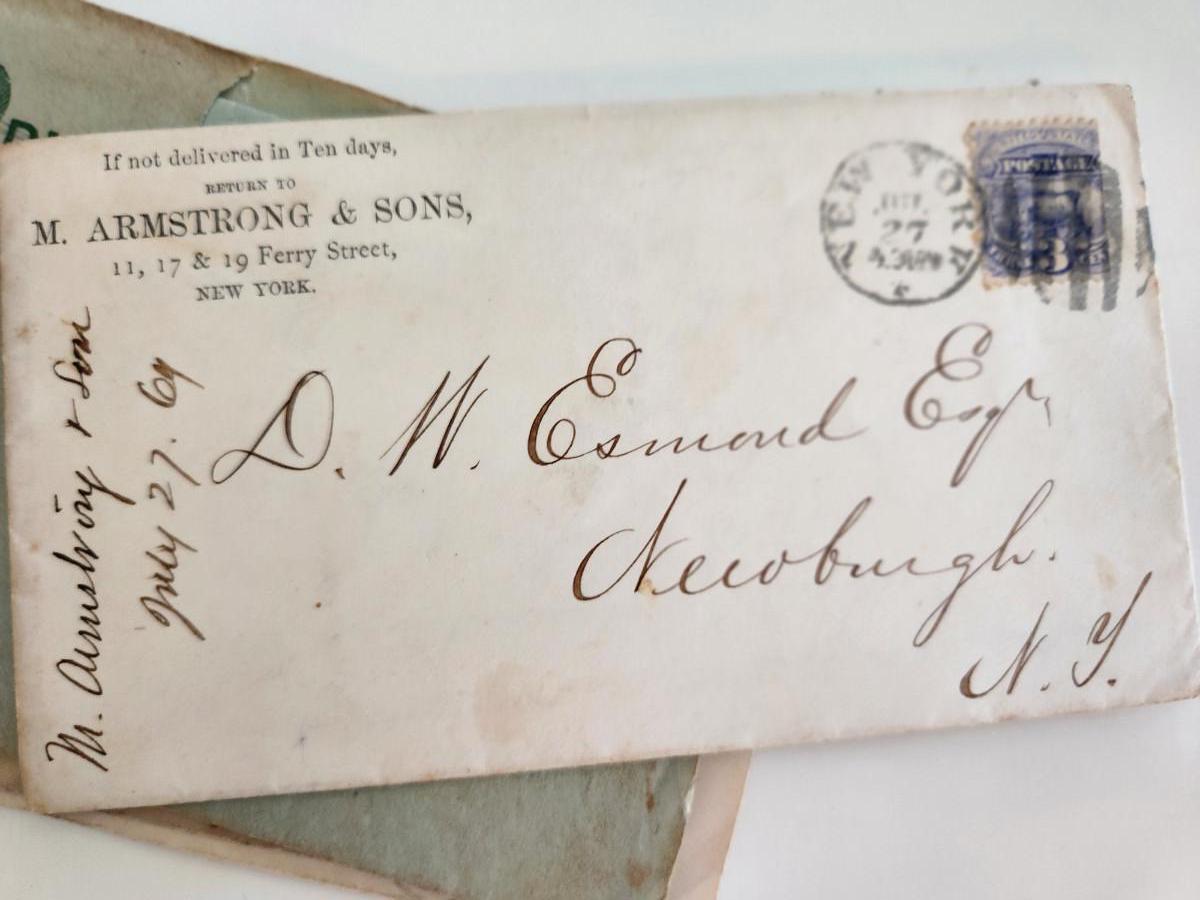 If not delivered in Ten days,
RETURN TO
M. ARMSTRONG & SONS,
11, 17 & 19 Ferry Street,
NEW YORK.
NEW YORK
JUL
27
POSTAGE
3
M. Armstrong & Son
July 27. 69
D. W. Esmond Esqr
Newburgh.
N. Y.